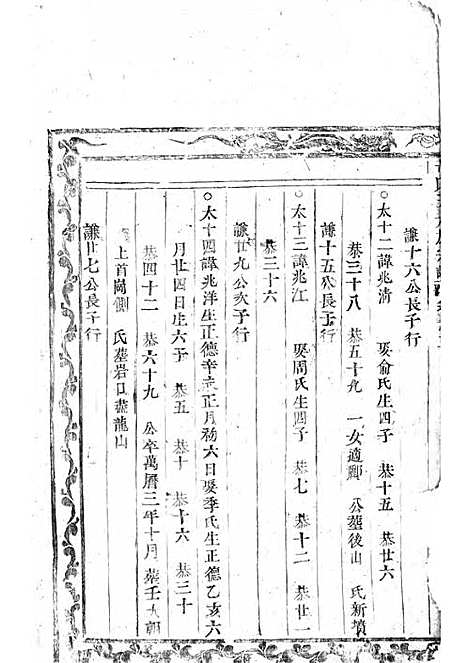 謙十六公長子行
○太十二諱兆清 娶俞氏生四子 恭十五 恭廿六
恭三十八 恭五十九 一女適鄭 公墓後山 氏新墳
謙十五公長子行
○太十三諱兆江 娶周氏生四子 恭七 恭十二 恭廿一
恭三十六
謙廿九公次子行
○太十四諱兆洋生正德辛未正月初六日娶季氏生正德乙亥六
月廿四日生六子 恭五 恭十 恭十六 恭三十
恭四十二 恭六十九 公卒萬曆三年十月 葬壬
上首崗側 氏墓岩口盤龍山
謙廿七公長子行